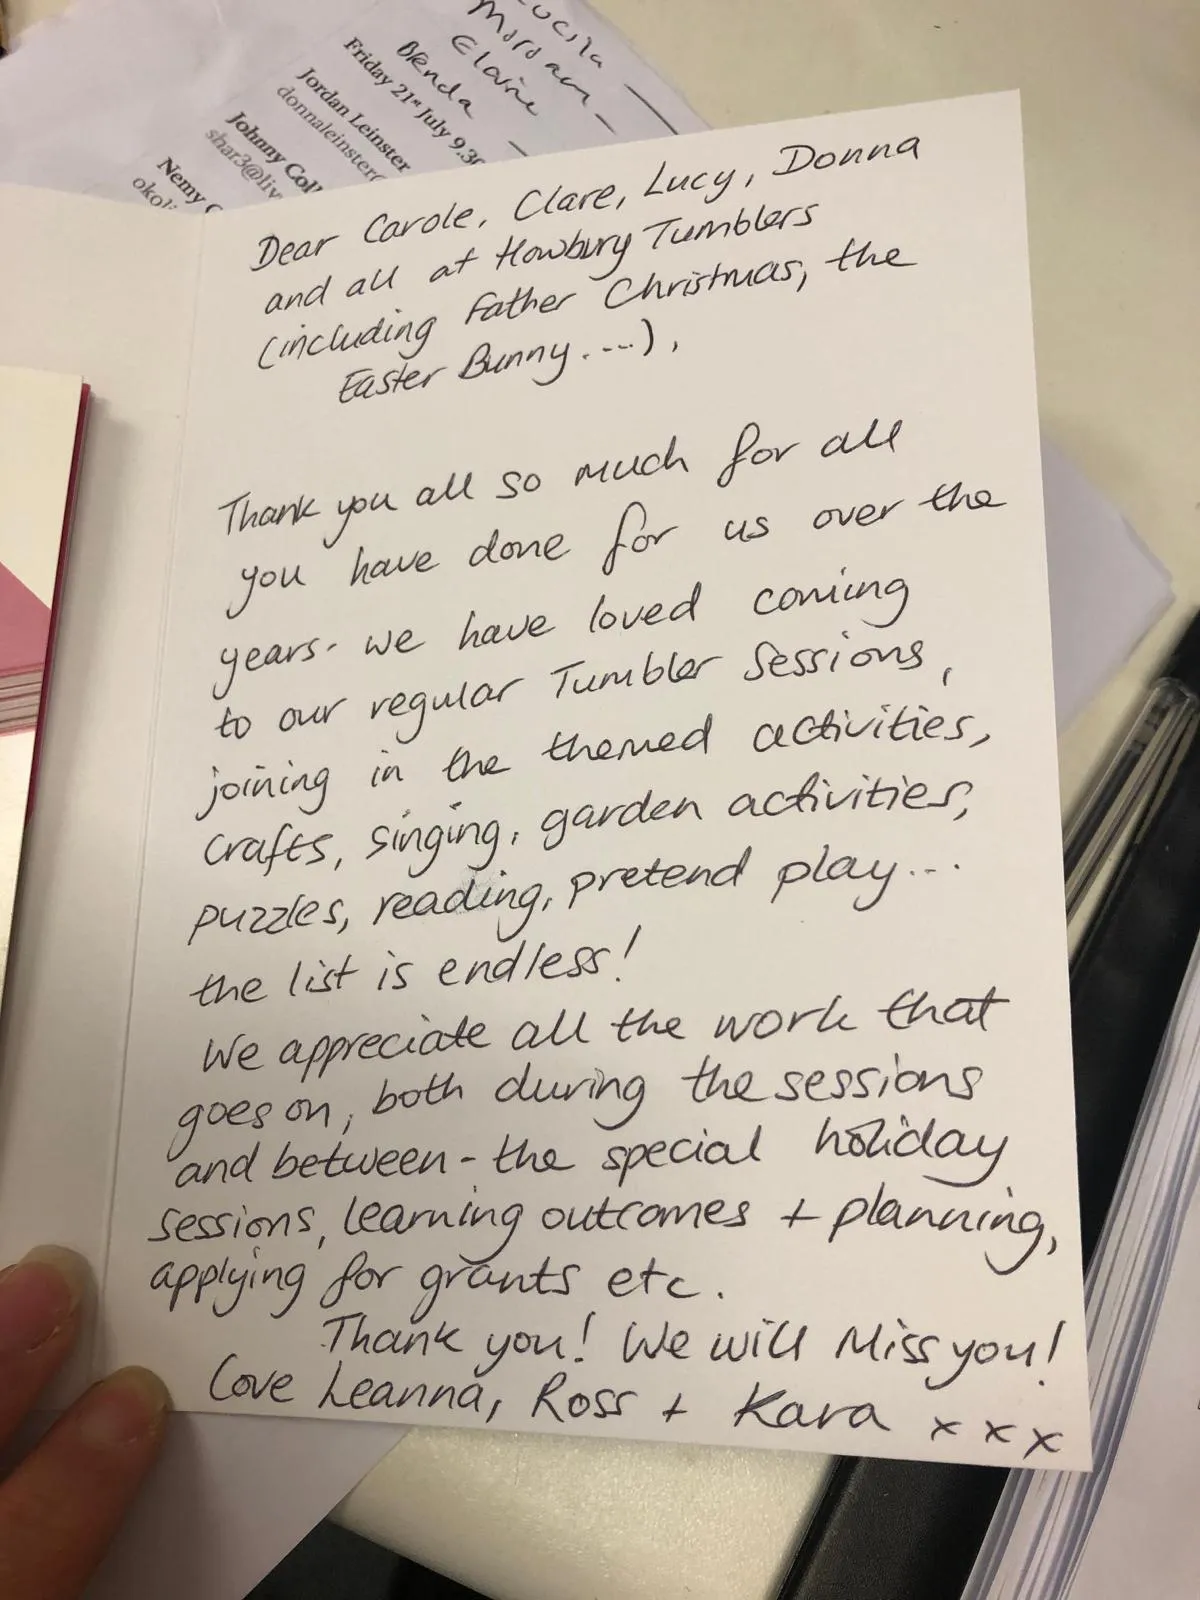 Lucila
Morgan
Elaine
Brenda
Friday 21st July 9.30
Jordan Leinster
donnaleinster@
Johnny Coll
shar3@liv
Nemy
okoli
Dear Carole, Clare, Lucy, Donna
and all at Howbury Tumblers
(including Father Christmas, the
Easter Bunny....),
Thank you all so much for all
you have done for us over the
years- we have loved coming
to our regular Tumbler sessions,
joining in the themed activities,
crafts, singing, garden activities,
puzzles, reading, pretend play...
the list is endless!
We appreciate all the work that
goes on, both during the sessions
and between - the special holiday
sessions, learning outcomes + planning,
applying for grants etc.
Thank you! We will Miss you!
Love Leanna, Ross + Kara x x x